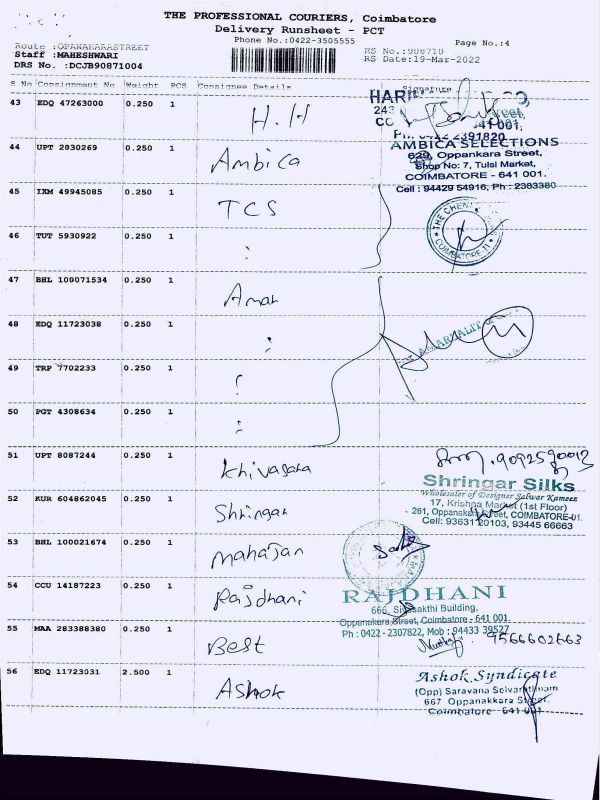 THE PROFESSIONAL COURIERS, Coimbatore
Delivery Runsheet - PCT
Phone No.:0422-3505555
Page No.:4
Route :OPANAKARASTREET
Staff :MAHESHWARI
RS No.:908710
DRS No. :DCJB90871004
RS Date:19-Mar-2022
S No Consignment No Weight PCS Consignee Details Signature
43 EDQ 47263000 0.250 1 H.H
HARI
243
CO 641 001.
Ph: 0422 2391820
44 UPT 2030269 0.250 1 Ambica
AMBICA SELECTIONS
629, Oppankara Street,
Shop No: 7, Tulsi Market,
COIMBATORE - 641 001.
Cell : 94429 54916, Ph : 2383380
45 IXM 49945085 0.250 1 TCS
THE CHEN
COIMBATORE
46 TUT 5930922 0.250 1 :
47 BHL 100071534 0.250 1 Aman
48 EDQ 11723038 0.250 1 :
49 TRP 7702233 0.250 1 :
50 PGT 4308634 0.250 1 :
51 UPT 8087244 0.250 1 Khivasara
52 KUR 604862045 0.250 1 Shringar
Shringar Silks
Wholesaler of Designer Salwar Kameez
17, Krishna Market (1st Floor)
261, Oppanakara Street, COIMBATORE-01.
Cell: 93631 20103, 93445 66663
53 BHL 100021674 0.250 1 Mahajan
54 CCU 14187223 0.250 1 Rajdhani
RAJDHANI
666, Sivasakthi Building,
Oppanakara Street, Coimbatore - 641 001.
Ph : 0422 - 2307822, Mob : 94433 39527
55 MAA 283388380 0.250 1 Best
9566602663
56 EDQ 11723031 2.500 1 Ashok
Ashok Syndicate
(Opp) Saravana Selvarathnam
667 Oppanakkara Street,
Coimbatore - 641 001